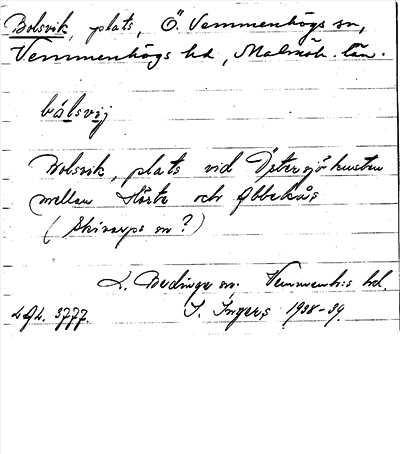 Bolsvik, plats, Ö. Vemmenhögs sn,
Vemmenhögs hd, Malmöh. län.
bålsvij
Bolsvik, plats vid Östersjökusten
mellan Hörte och Abbekås
(Skivarps sn?)
L. Beddinge sn. Vemmenh:s hd.
LAL. 3777. I. Ingers 1938-39.